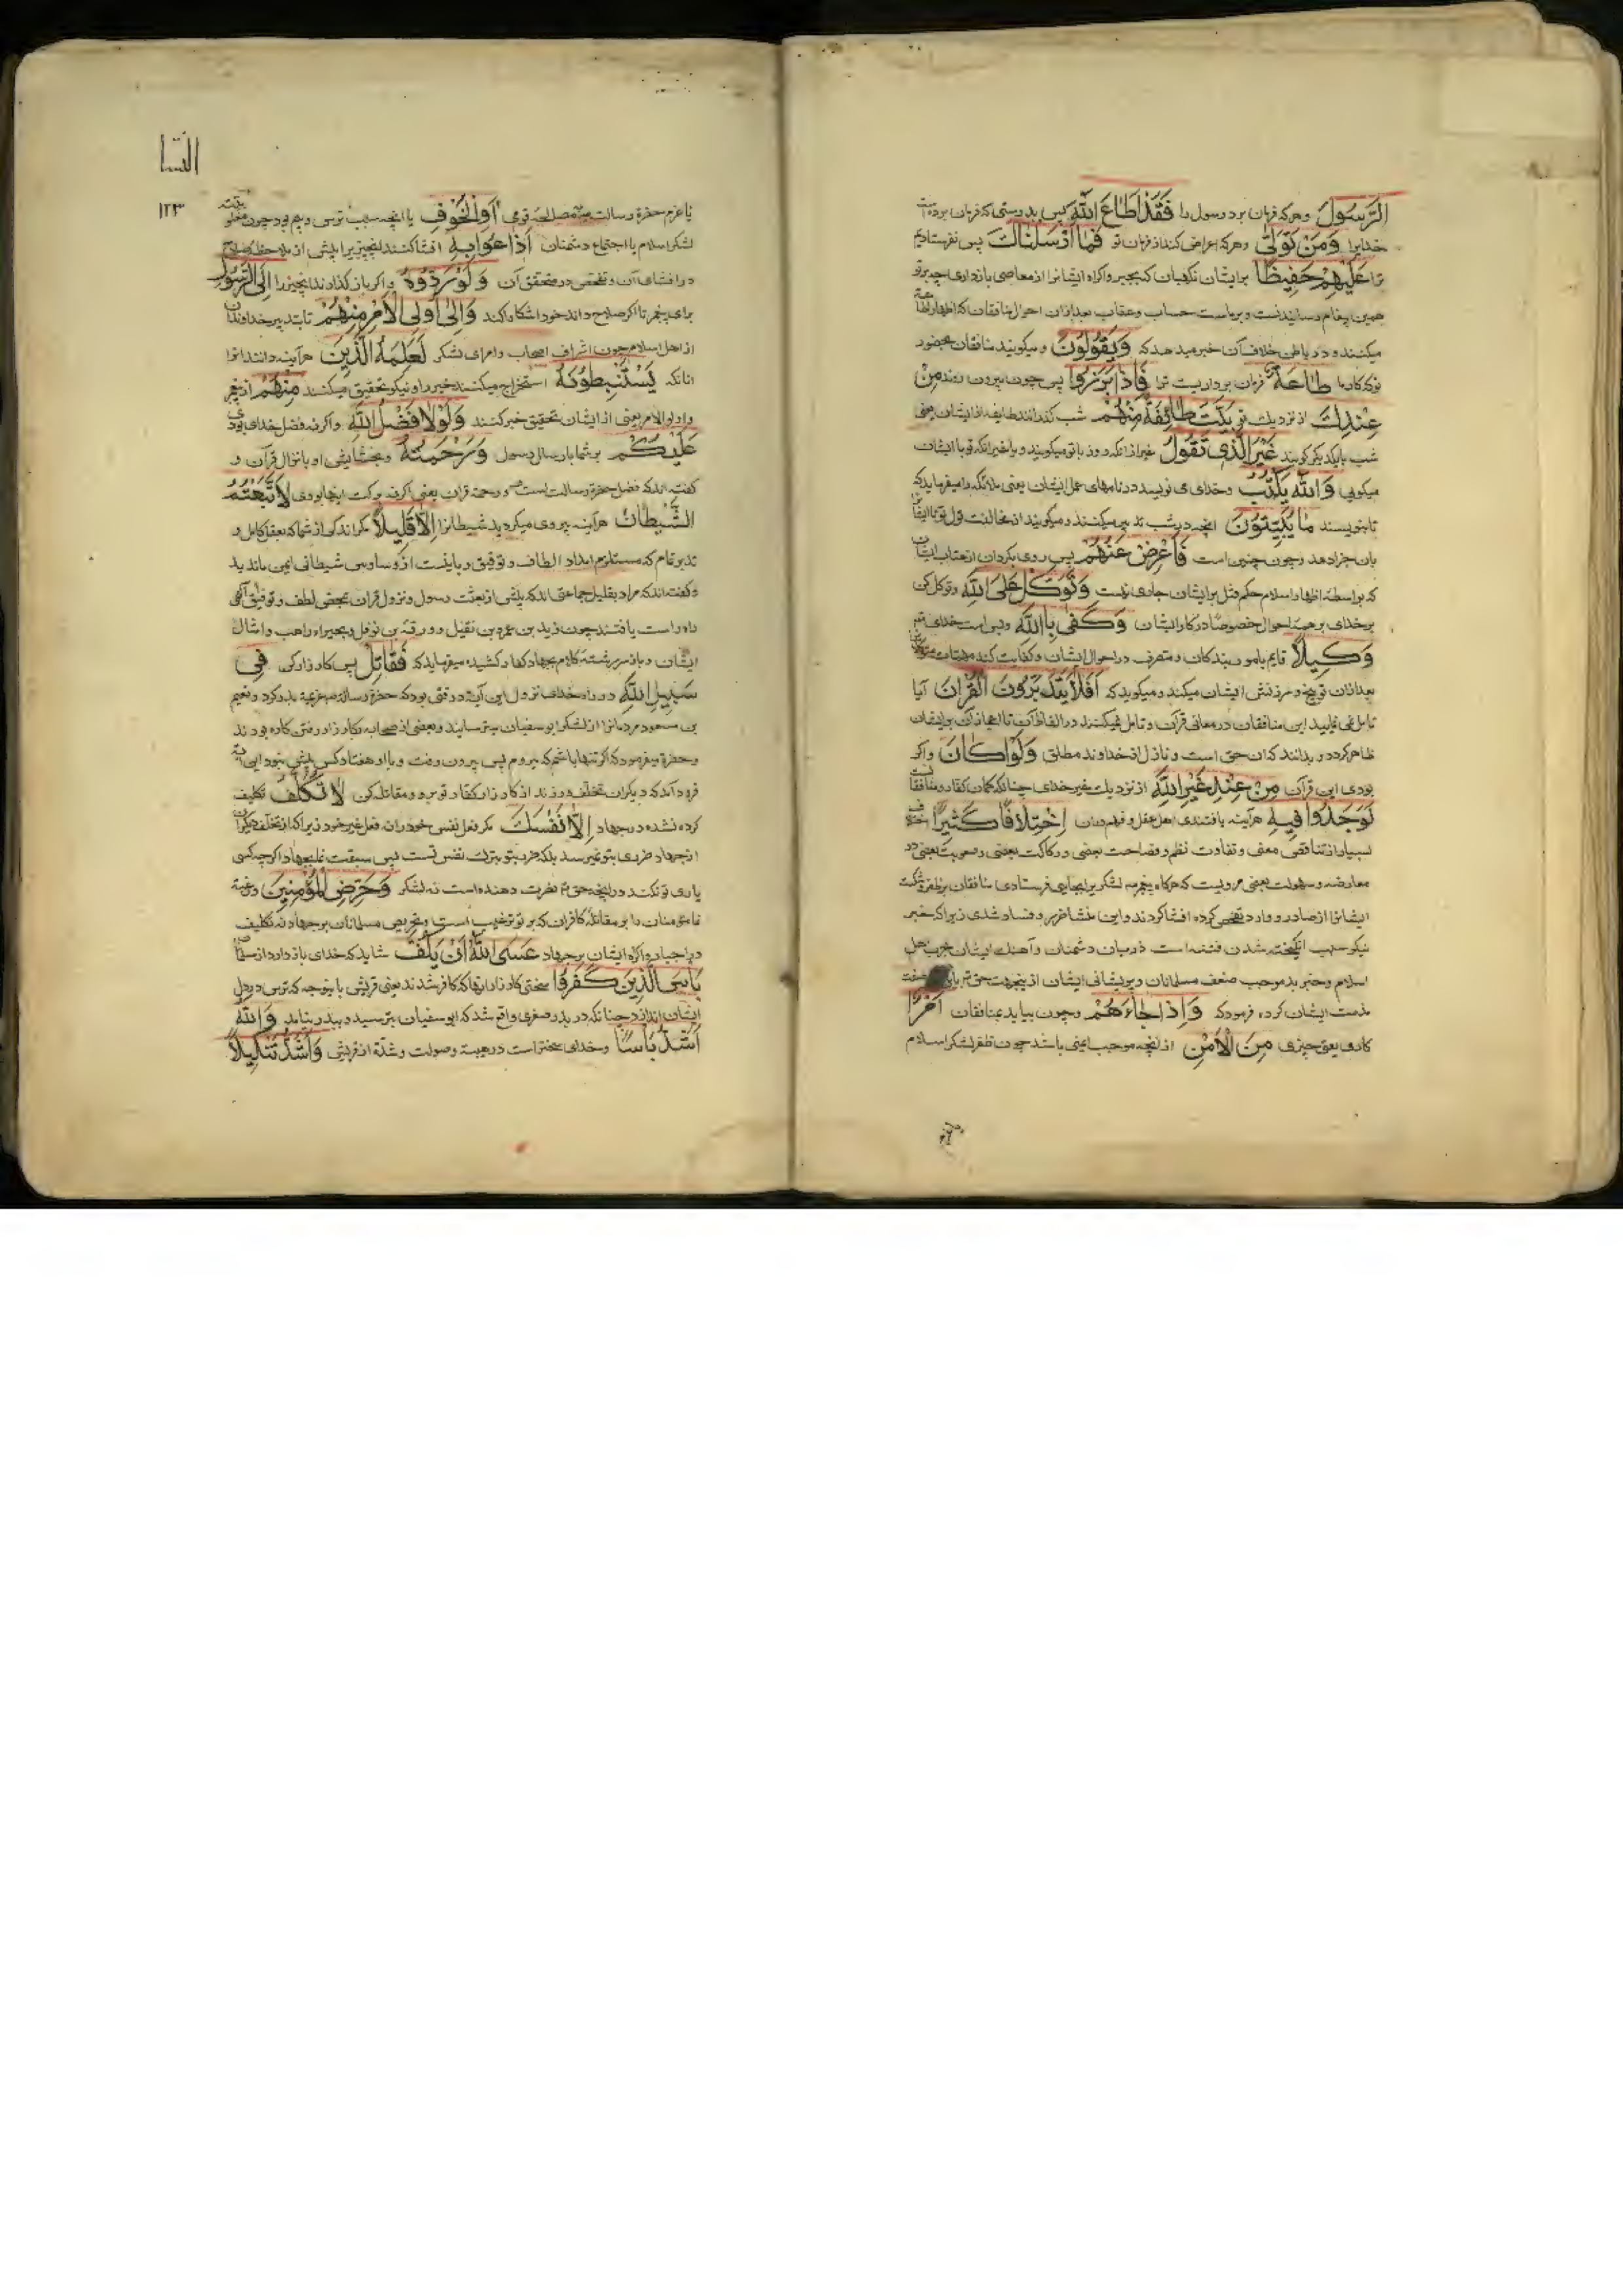 الرَّسُولَ وهر که فرمان برد رسول را فَقَدْ اَطَاعَ اللهَ پس بدرستی که فرمان برده است
خدایرا وَمَنْ تَوَلّٰی وهر که اعراض کند از فرمان تو فَمَا اَرْسَلْنَاكَ پس نفرستادیم
ترا عَلَيْهِمْ حَفِيظًا برایشان نکهبان که بجبر واکراه ایشانرا از معاصی بازداری چه برتو
همین پیغام رسانیدنست و برماست حساب وعقاب بعد ازان احوال منافقان که اظهار طاعة
میکنند و در باطن خلاف آن خبر میدهد که وَيَقُولُونَ و میکویند منافقان بحضور
تو که کار ما طَاعَةٌ فرمان برداریست ترا فَاِذَا بَرَزُوا پس چون بیرون روند مِنْ
عِنْدِكَ از نزدیك تو بَيَّتَ طَائِفَةٌ مِنْهُمْ شب کذرانند طایفه از ایشان یعنی
شب بایکدیکر کویند غَيْرَ الَّذِي تَقُولُ غیر ازانکه روز با تو میکویند ویا غیر انکه تو با ایشان
میکویی وَاللهُ يَكْتُبُ وخدای می نویسد در نامهای عمل ایشان یعنی ملائکه را میفرماید که
تا بنویسند مَا يُبَيِّتُونَ انچه در شب تدبیر میکنند و میکویند از مخالفت قول تو تا ایشانرا
بان جزا دهد وچون چنین است فَاَعْرِضْ عَنْهُمْ پس روی بکردان از عتاب ایشان
که بواسطه اظهار اسلام حکم قتل بر ایشان جاری نیست وَتَوَكَّلْ عَلَى اللهِ وتوکل کن
برخدای برهمه احوال خصوصا در کار ایشان وَكَفٰى بِاللهِ وبس است خدای تعم
وَكِيلًا قایم بامور بندکان و متصرف در احوال ایشان و کفایت کننده مهمات
بعد ازان توبیخ و سرزنش ایشان میکند و میکوید که اَفَلَا يَتَدَبَّرُونَ الْقُرْآنَ آیا
تامل نمی نمایند این منافقان در معانی قرآن و تامل نمیکنند در الفاظ آن تا اعجاز آن برایشان
ظاهر کردد و بدانند که ان حق است و نازل از خداوند مطلق وَلَوْ كَانَ واکر
بودی این قرآن مِنْ عِنْدِ غَيْرِ اللهِ از نزدیك غیر خدای چنانکه کمان کفار و منافقانست
لَوَجَدُوا فِيهِ هرآینه یافتندی اهل عقل و فهم دران اِخْتِلَافًا كَثِيرًا اختلافی
بسیار از تناقض معنی و تفاوت نظم و فصاحت بعضی و رکاکت بعضی و صعوبت بعضی در
معارضه و سهولت بعضی مرویست که هرکاه پیغمبر صه لشکر برایجایی فرستادی منافقان
ایشانرا از صادر و وارد تفحص کرده افشا کردند و این منشا ضرر و فساد شدی زیرا که خبر
نیکو سبب انکیخته شدن فتنه است درمیان دشمنان و آهنك ایشان بحرب اهل
اسلام وخبر بد موجب ضعف مسلمانان و پریشانی ایشان ازینجهت حق تع
مذمت ایشان کرده فرمود که وَاِذَا جَاءَهُمْ وچون بیاید بمنافقان اَمْرٌ
کاری یعنی چیزی مِنَ الْاَمْنِ از انچه موجب ایمنی باشد چون ظفر لشکر اسلام
النسا
۱۲۳
یا عزم حضرة رسالت صه مصالحه قومی اَوِ الْخَوْفِ یا انچه سبب ترس و بیم بود چون
لشکر اسلام یا اجتماع دشمنان اَذَاعُوا بِهِ افشا کنند انچیز را پیش از ملاحظه صلاح
در افشای آن و تفحص در تحقق آن وَلَوْ رَدُّوهُ واکر باز کذارند انچیز را اِلَى الرَّسُولِ
برای پیغمبر تا اکر صلاح داند خود اشکارا کند وَاِلٰى اُولِى الْاَمْرِ مِنْهُمْ تا بتدبیر خداوندان
از اهل اسلام چون اشراف اصحاب و امرای لشکر لَعَلِمَهُ الَّذِينَ هرآینه دانند انرا
انانکه يَسْتَنْبِطُونَهُ استخراج میکنند خبر را و نیکو تحقیق میکنند مِنْهُمْ از پیغمبر
واولوالامر یعنی از ایشان تحقیق خبر کنند وَلَوْلَا فَضْلُ اللهِ واکر نه فضل خدای بودی
عَلَيْكُمْ بر شما بارسال رسول وَرَحْمَتُهُ وبخشایش او بانزال قرآن و
کفته اند که فضل حضرة رسالت است صه ورحمة قران یعنی اکر نه برکت اینها بودی لَاتَّبَعْتُمُ
الشَّيْطَانَ هرآینه پیروی میکردید شیطانرا اِلَّا قَلِيلًا مکر اندکی از شما که بعقل کامل و
تدبر تمام که مستلزم امداد الطاف و توفیق ربانیست از وساوس شیطانی ایمن باندید
و کفته اند که مراد بقلیل جماعتی اند که پیش از بعثت رسول و نزول قران بمحض لطف و توفیق الهی
راه راست یافتند چون زید بن عمرو بن نفیل و ورقة بن نوفل و بحیراء راهب و امثال
ایشان و باز سررشته کلام بجهاد کفار کشیده میفرماید که فَقَاتِلْ پس کارزار کن فِي
سَبِيلِ اللهِ در راه خدای نزول این آیة در وقتی بود که حضرة رساله صه عزیمة بدر کرد و نعیم
بن مسعود مردمانرا از لشکر ابوسفیان بترسانید و بعضی از صحابه بکارزار رفتن کاره بودند
وحضرة میفرمود که اکر تنها باشم که بیروم پس بیرون رفت و با او هفتاد کس بیش نبود این آیة
فرود آمد که دیکران تخلف ورزند از کارزار کفار تو برو و مقاتله کن لَا تُكَلَّفُ تکلیف
کرده نشده در جهاد اِلَّا نَفْسَكَ مکر فعل نفس خود را نه فعل غیر خود زیرا که از تخلف دیکران
از جهاد ضرری بتو نمیرسد بلکه ضرر بتو بترك نفس تست پس سبقت نما بجهاد اکرچه کسی
یاری تو نکند درانچه حق تع نصرت دهنده است نه لشکر وَحَرِّضِ الْمُؤْمِنِينَ ورغبة
نما مؤمنان را بر مقاتله کافران که بر تو ترغیب است و تحریص مسلمانان برجهاد نه تکلیف
در اجبار و اکراه ایشان برجهاد عَسَى اللهُ اَنْ يَكُفَّ شاید که خدای باز دارد از شما
بَأْسَ الَّذِينَ كَفَرُوا سختی کارزار انها که کافر شدند یعنی قریش باینوجه که ترس در دل
ایشان اندازد چنانکه در بدر صغری واقع شد که ابوسفیان بترسید و ببدر نیامد وَاللهُ
اَشَدُّ بَأْسًا وخدای سختتر است در هیبة و صولت و شدة از قریش وَاَشَدُّ تَنْكِيلًا